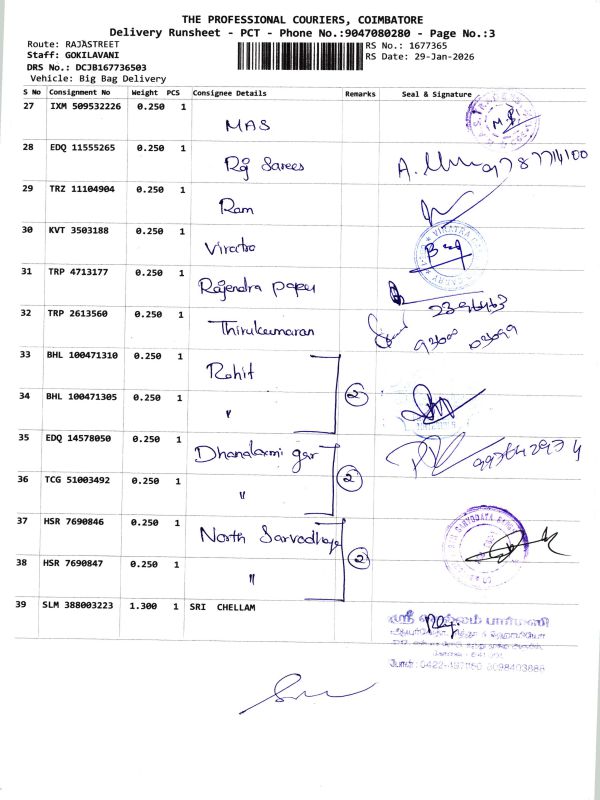 THE PROFESSIONAL COURIERS, COIMBATORE
Delivery Runsheet - PCT - Phone No.:9047080280 - Page No.:3
Route: RAJASTREET
RS No.: 1677365
Staff: GOKILAVANI
RS Date: 29-Jan-2026
DRS No.: DCJB167736503
Vehicle: Big Bag Delivery
S No Consignment No Weight PCS Consignee Details Remarks Seal & Signature
27 IXM 509532226 0.250 1 MAS
28 EDQ 11555265 0.250 1 Raj Sarees
29 TRZ 11104904 0.250 1 Ram
30 KVT 3503188 0.250 1 Viratra VIRATRA
31 TRP 4713177 0.250 1 Rajendra paper
32 TRP 2613560 0.250 1 Thirukumaran
33 BHL 100471310 0.250 1 Rohit
2
34 BHL 100471305 0.250 1 "
35 EDQ 14578050 0.250 1 Dhanalaxmi gar
2
36 TCG 51003492 0.250 1 "
37 HSR 7690846 0.250 1 North Sarvodhaya
2
38 HSR 7690847 0.250 1 "
39 SLM 388003223 1.300 1 SRI CHELLAM